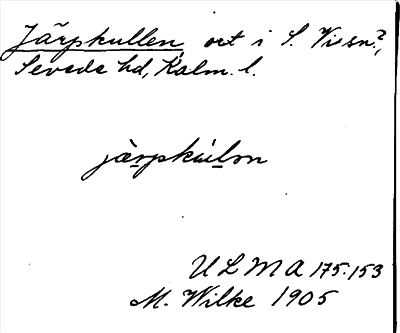 Järpkullen, ort i S. Vi sn?,
Sevede hd, Kalm. l.
ULMA 175:153
M. Wilke 1905